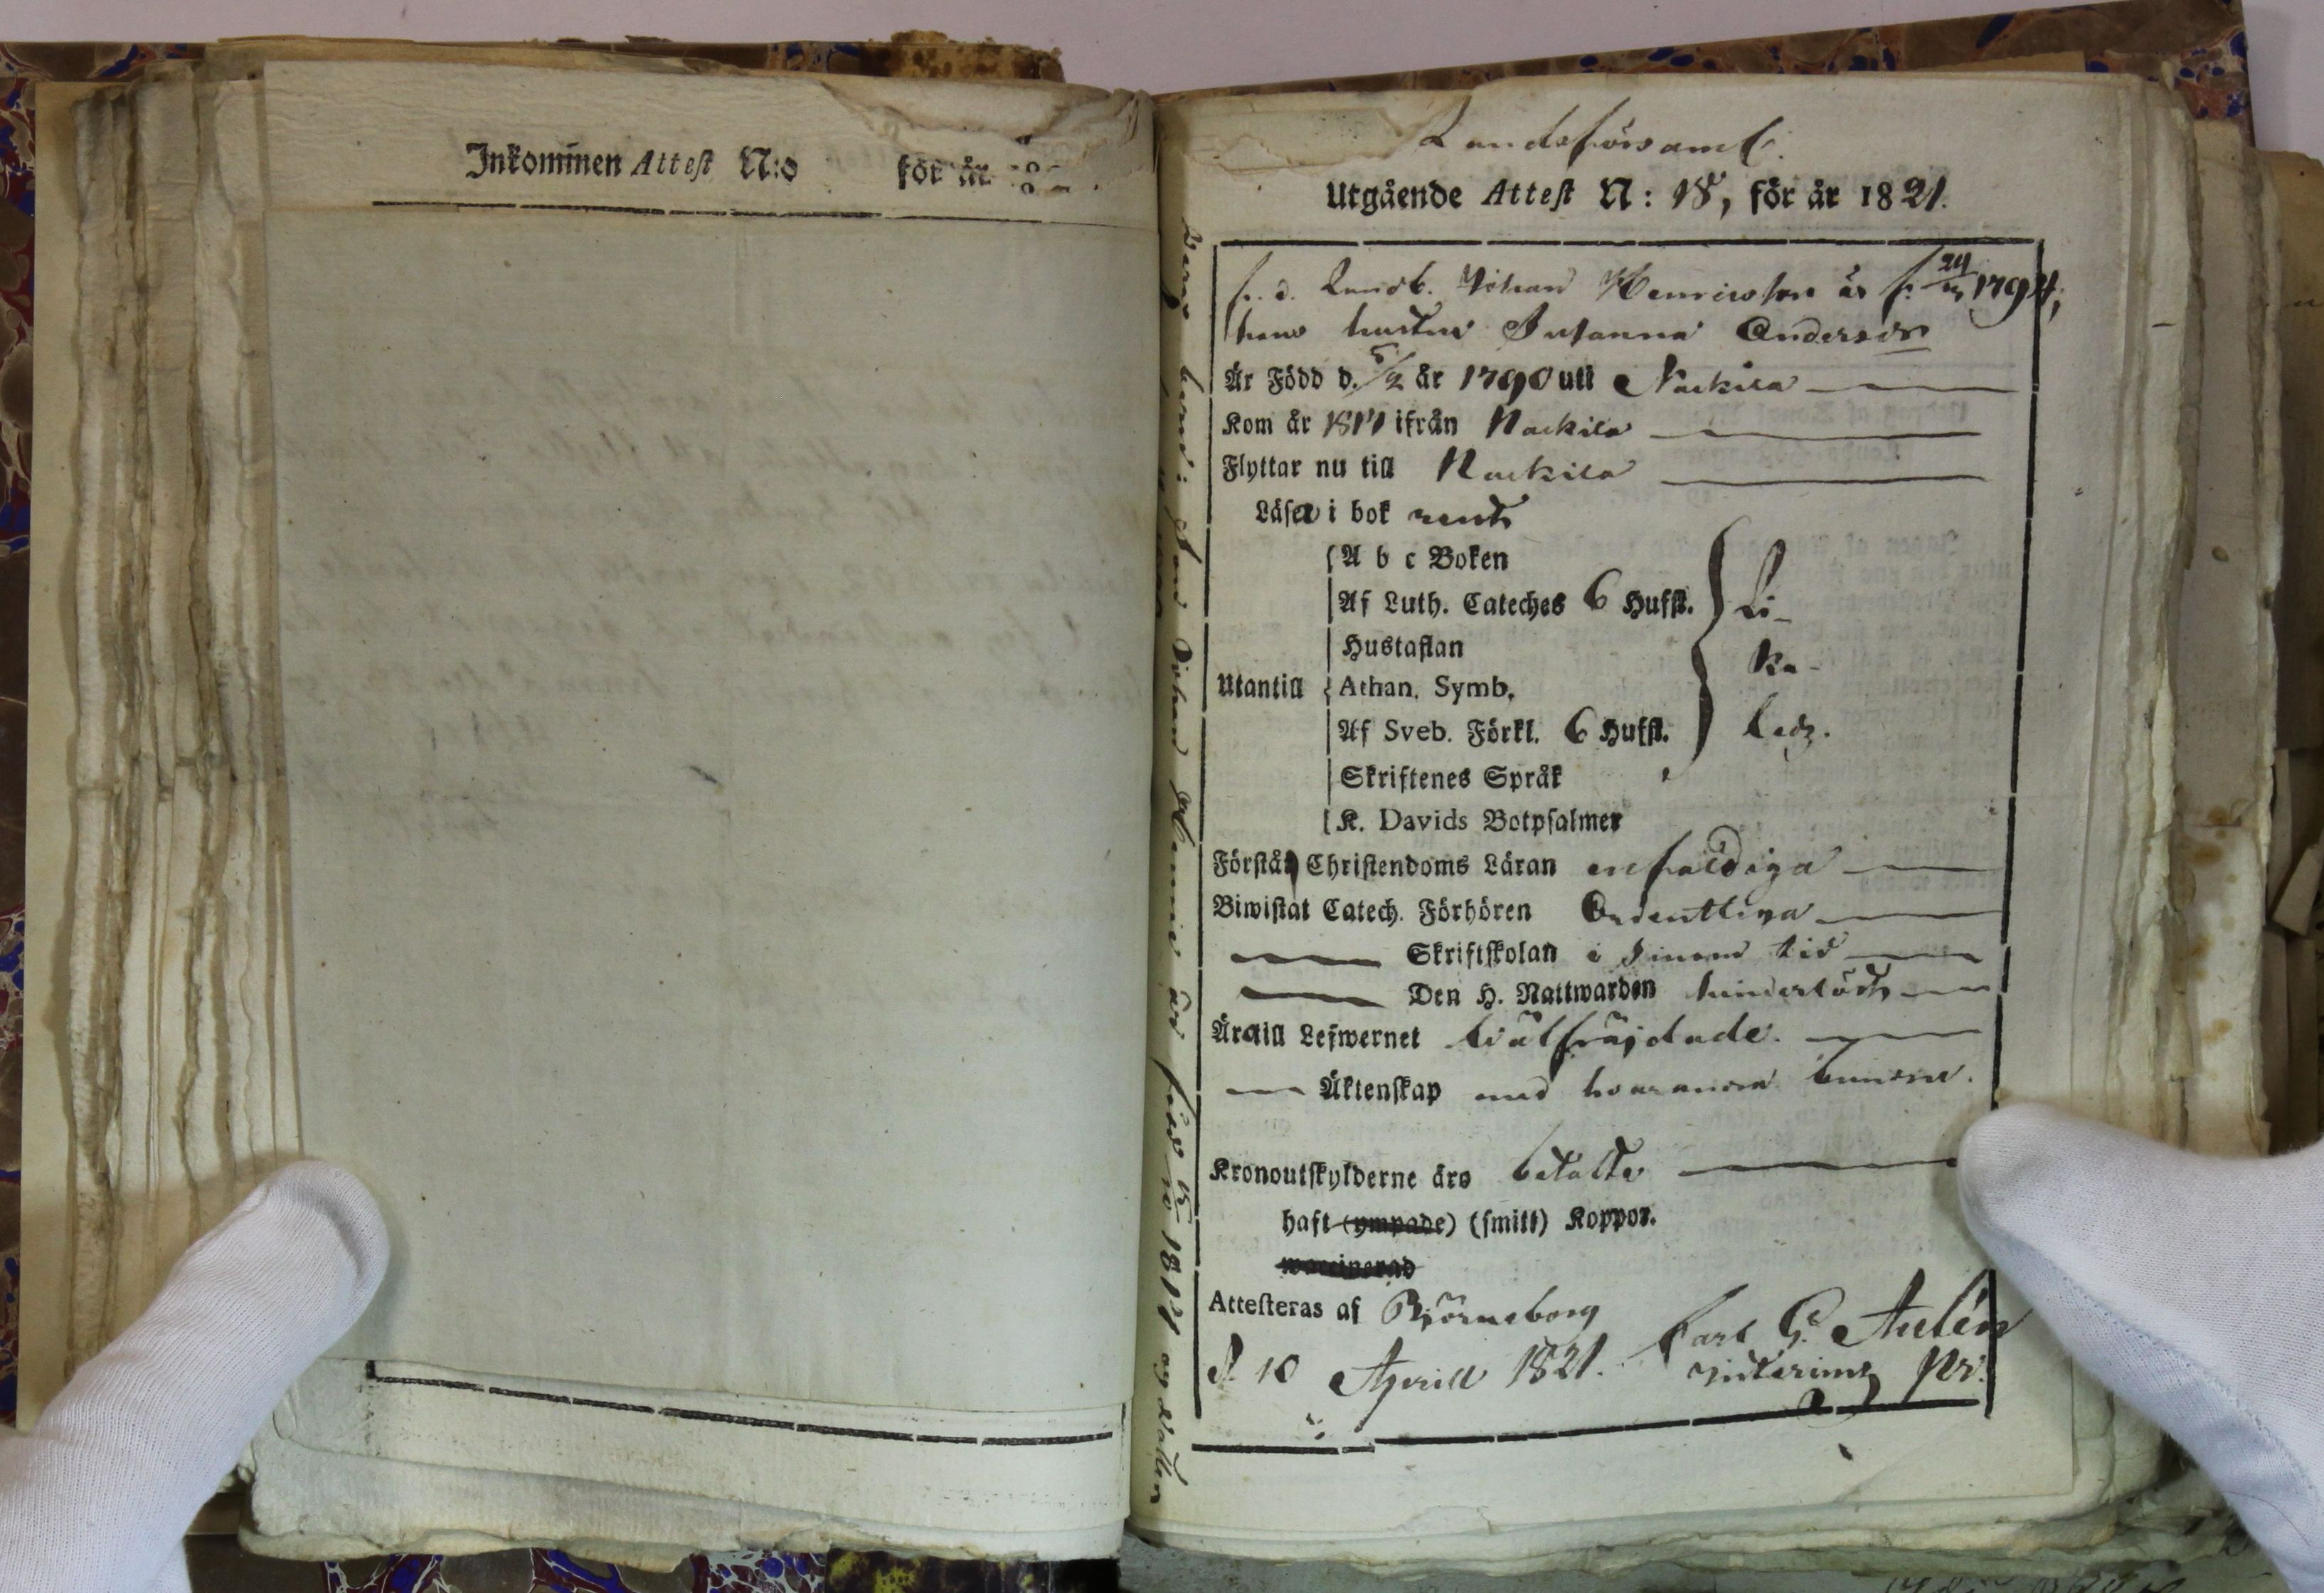 Inkommen Attest N:o för år
Landsförsaml.
Utgående Attest N: 18, för år 1821.
f. d. Landb. Johan Henricson är f. 24 1794,
hans hustru Susanna Andersdr
Är Född d. 5/2 år 1790 uti Nackila
Kom år 1817 ifrån Nackila
Flyttar nu till Nackila
Läsa i bok rent
A b c Boken
Af Luth. Cateches 6 Hufst. Li-
Hustaflan
ka-
Utantill Athan. Symb.
Af Sveb. Förkl. 6 Hufst. ledz.
Skriftenes Språk
K. Davids Botpsalmer
Förstå Christendoms Läran enfaldiga
Biwistat Catech. Förhören Ordentliga
Skriftskolan i sinom tid
Den H. Nattwarden hinderlöst
Äro till Lefwernet wälfräjdade.
Äktenskap med hvarandra bundne.
Kronoutskylderne äro betalte
haft (ympade) (smitt) Koppor.
waccinerad
Attesteras af Björneborg
d. 10 Aprill 1821. Carl G. Aulén
interims Pr.
Deras barn: Son Johan Henric är född 1817